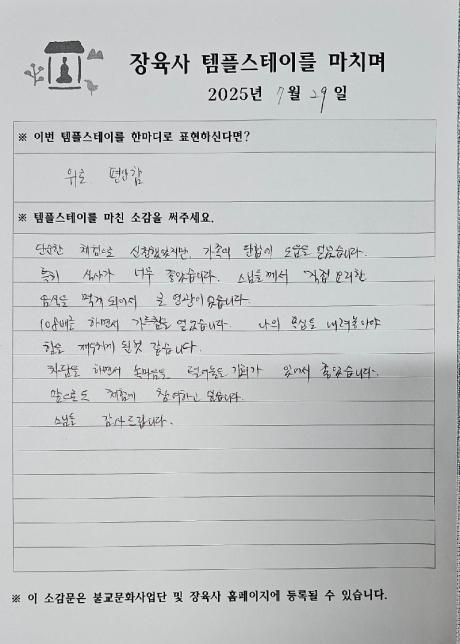 장육사 템플스테이를 마치며
2025년 7월 29일
※ 이번 템플스테이를 한마디로 표현하신다면?
위로. 편안함
※ 템플스테이를 마친 소감을 써주세요.
단순한 체험으로 신청했었지만, 가족의 단합이 도움을 얻었습니다.
특히 식사가 너무 좋았습니다. 스님들께서 직접 요리한
음식을 먹게 되어서 큰 영광이었습니다.
108배를 하면서 가르침을 얻었습니다. 나의 욕심을 내려놓아야
함을 깨우치게 된것 같습니다.
차담을 하면서 속마음을 털어놓을 기회가 있어서 좋았습니다.
앞으로도 참여하고 싶습니다.
스님들 감사드립니다.
※ 이 소감문은 불교문화사업단 및 장육사 홈페이지에 등록될 수 있습니다.